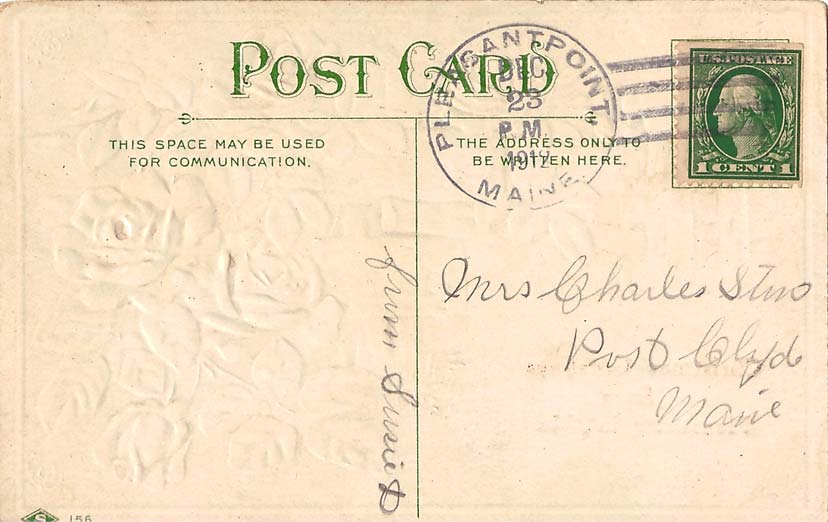 POST CARD
THIS SPACE MAY BE USED
FOR COMMUNICATION.
THE ADDRESS ONLY TO
BE WRITTEN HERE.
PLEASANT POINT,
DEC
23
P.M.
1912
MAINE
U.S. POSTAGE
1 CENT 1
Mrs Charles
Port Clyde
Maine
from Susie D
S 156